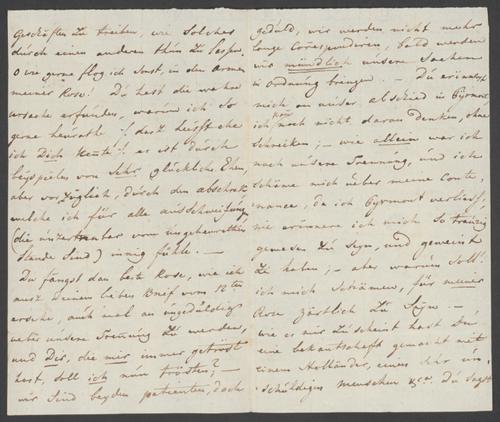 Geschäften zu treiben, wie solches
durch einen anderen thun zu lassen,
O wie gerne flog ich sonst, in den Armen
meiner Rose! Du hast die wahre
ursache erfunden, warum ich so
gerne heürathe
ich Dich Heute!! es ist durch
beyspielen von sehr glückliche Ehen,
aber vorzüglich, durch den abschreck
welche ich für alle ausschweifung
(die unzertrenbar vom ungeheuratheten
stande sind) innig fühle. —
Du fängst dan liebe Rose, wie ich
aus Deinen lieben Brief vom 12ten
ersehe, auch mal an ungedüldig
ueber unsere Trennung zu werden,
und Dir, die mir immer getröst
hast, soll ich nun trösten? —
wir sind beyden patienten, doch
gedüld, wir werden nicht mehr
lange Correspondieren, bald werden
wir mündlich unsere Sachen
in ordnung bringen — Du erinnerst
mich an unser abschied in Pyrmont
ich kan noch nicht daran Denken, ohne
Schrecken; — wie allein war ich
nach unsere Trennung, und ich
Schäme mich ueber meine Conte,
nance, da ich Pyrmont verliess,
nie erinnere ich mich so traurig
gewesen zu seyn, und geweint
zu haben; — aber warum soll
ich mich Schämen, für meiner
Rose zärtlich zu seyn —
wie es mir zu scheint hast Du
eine bekantschaft gemacht mit
einem Holländer, einen sehr un,
schüldigen menschen Du sagst